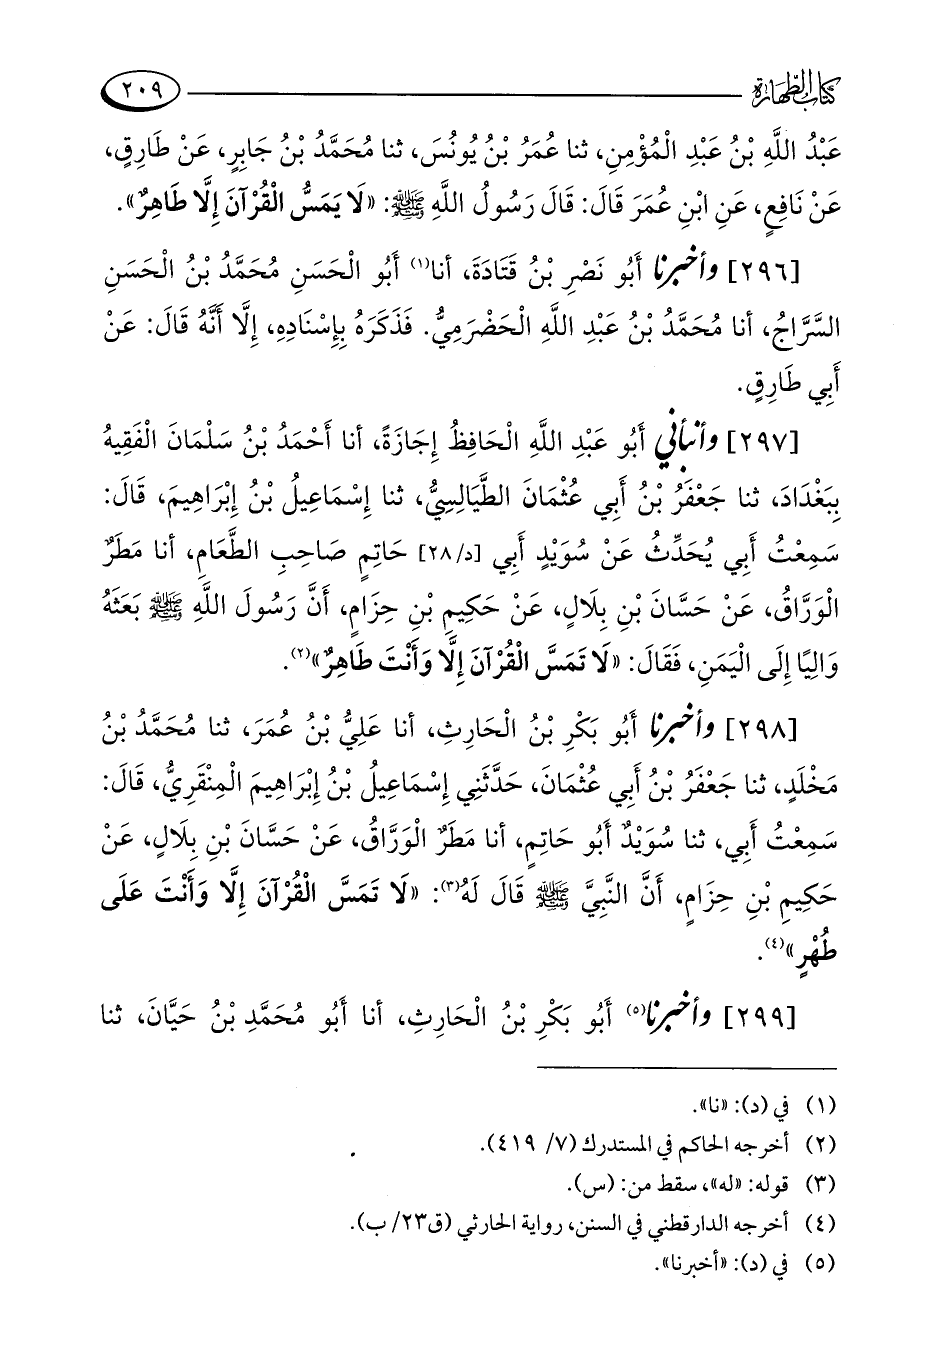 كتاب الطهارة ٢٠٩
عَبْدُ اللَّهِ بْنُ عَبْدِ الْمُؤْمِنِ، ثنا عُمَرُ بْنُ يُونُسَ، ثنا مُحَمَّدُ بْنُ جَابِرٍ، عَنْ طَارِقٍ،
عَنْ نَافِعٍ، عَنِ ابْنِ عُمَرَ قَالَ: قَالَ رَسُولُ اللَّهِ ﷺ: «لَا يَمَسُّ الْقُرْآنَ إِلَّا طَاهِرٌ».
[٢٩٦] وأخبرنا أَبُو نَصْرِ بْنُ قَتَادَةَ، أنا(١) أَبُو الْحَسَنِ مُحَمَّدُ بْنُ الْحَسَنِ
السَّرَّاجُ، أنا مُحَمَّدُ بْنُ عَبْدِ اللَّهِ الْحَضْرَمِيُّ. فَذَكَرَهُ بِإِسْنَادِهِ، إِلَّا أَنَّهُ قَالَ: عَنْ
أَبِي طَارِقٍ.
[٢٩٧] وأنبأني أَبُو عَبْدِ اللَّهِ الْحَافِظُ إِجَازَةً، أنا أَحْمَدُ بْنُ سَلْمَانَ الْفَقِيهُ
بِبَغْدَادَ، ثنا جَعْفَرُ بْنُ أَبِي عُثْمَانَ الطَّيَالِسِيُّ، ثنا إِسْمَاعِيلُ بْنُ إِبْرَاهِيمَ، قَالَ:
سَمِعْتُ أَبِي يُحَدِّثُ عَنْ سُوَيْدٍ أَبِي [د/٢٨] حَاتِمٍ صَاحِبِ الطَّعَامِ، أنا مَطَرٌ
الْوَرَّاقُ، عَنْ حَسَّانَ بْنِ بِلَالٍ، عَنْ حَكِيمِ بْنِ حِزَامٍ، أَنَّ رَسُولَ اللَّهِ ﷺ بَعَثَهُ
وَالِيًا إِلَى الْيَمَنِ، فَقَالَ: «لَا تَمَسَّ الْقُرْآنَ إِلَّا وَأَنْتَ طَاهِرٌ»(٢).
[٢٩٨] وأخبرنا أَبُو بَكْرِ بْنُ الْحَارِثِ، أنا عَلِيُّ بْنُ عُمَرَ، ثنا مُحَمَّدُ بْنُ
مَخْلَدٍ، ثنا جَعْفَرُ بْنُ أَبِي عُثْمَانَ، حَدَّثَنِي إِسْمَاعِيلُ بْنُ إِبْرَاهِيمَ الْمِنْقَرِيُّ، قَالَ:
سَمِعْتُ أَبِي، ثنا سُوَيْدٌ أَبُو حَاتِمٍ، أنا مَطَرٌ الْوَرَّاقُ، عَنْ حَسَّانَ بْنِ بِلَالٍ، عَنْ
حَكِيمِ بْنِ حِزَامٍ، أَنَّ النَّبِيَّ ﷺ قَالَ لَهُ(٣): «لَا تَمَسَّ الْقُرْآنَ إِلَّا وَأَنْتَ عَلَى
طُهْرٍ»(٤).
[٢٩٩] وأخبرنا(٥) أَبُو بَكْرِ بْنُ الْحَارِثِ، أنا أَبُو مُحَمَّدِ بْنُ حَيَّانَ، ثنا
(١) في (د): «نا».
(٢) أخرجه الحاكم في المستدرك (٧/ ٤١٩).
(٣) قوله: «له»، سقط من: (س).
(٤) أخرجه الدارقطني في السنن، رواية الحارثي (ق٢٣/ ب).
(٥) في (د): «أخبرنا».